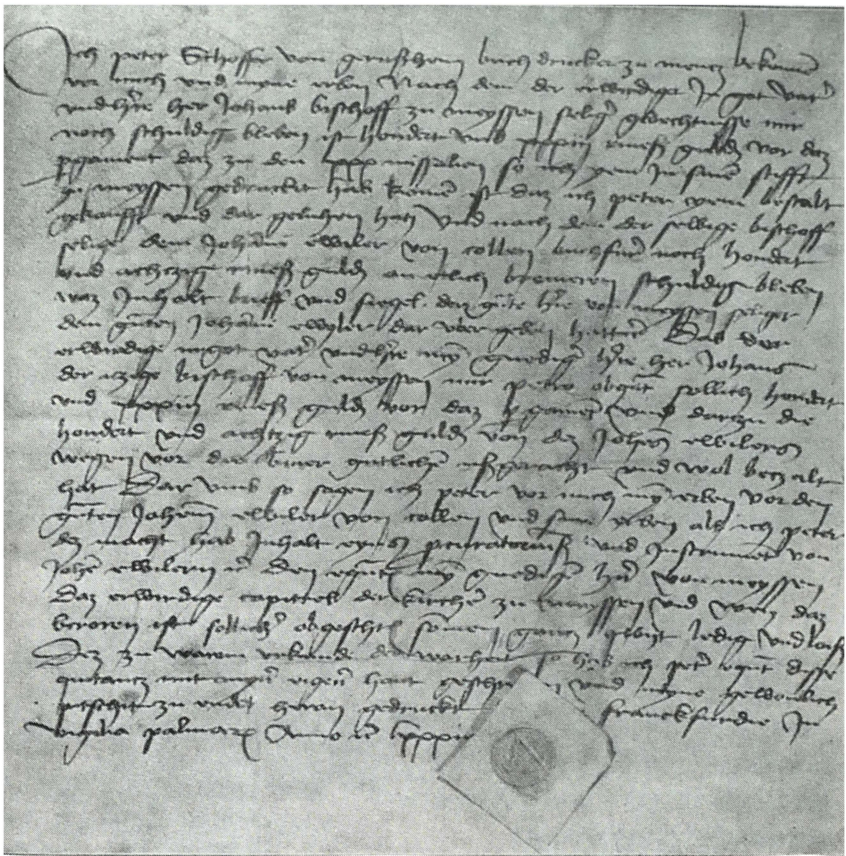 Ich peter Schoffer von gernßheim buchdrucker zu mencz bekenne
vor mich und myne erben Nach dem der erwirdiger In got vat'
und h're her Johans bischoff zu meyssen selig' gedechtnisse mir
noch schuldig bleben ist hondert und rinsß guld' vor daz
p'gament daz zu den missalien so ich yem In sine stifft
zu meyssen gedruckt hab komē ist daz ich peter yem bestalt
gekaufft und dar geluhen hatt Und nach dem der selbige bischoff
selige dem Johān elwiler von collen buchfurer noch hondert
und achczig rinsß guld' an etlich schuldig bleben
waz Inhalt brieff und siegel der gūte h're von meyssen seliger
dem gūten Johān elwyler dar uber geben hatte Daß der
erwirdige in got vat' und h're myn gnedig' h're her Johans
der iczige bischoff von meyssen mir petro obgūt sollich hondert
und rinsß guld' vor daz p'gamēt und darzu die
hondert und achtzig rinsß guld' von dez Johān elwilers
wegen vor die gutlichē ußgeracht und wol beczalt
hat Dar umb so sagen ich peter vor mich myn erben vor den
gūten Johān elwiler von collen und sine erben als ich peter
dez macht hab Inhalt eyns procuratoriūß und Instrumēt von
Johān elwilern den egūt myn gnedigē h're von meyssen
Daz erwirdige capittel der kirchē zu meyssen und wen daz
beroren ist sollich' obgeschr' somen gancz qwit ledig und loiß
Dez zu warem urkunde der warheit so hab ich pet' egūt disse
quitancz mit myn' eigen hant geschr und myne gewonlich
pitschir zu ende heran gedruckt franckfurdie In
vigilia palmar' Anno